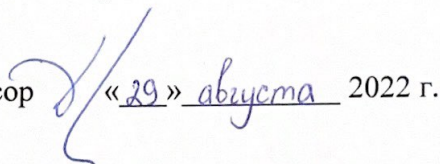 сор «29» августа 2022 г.